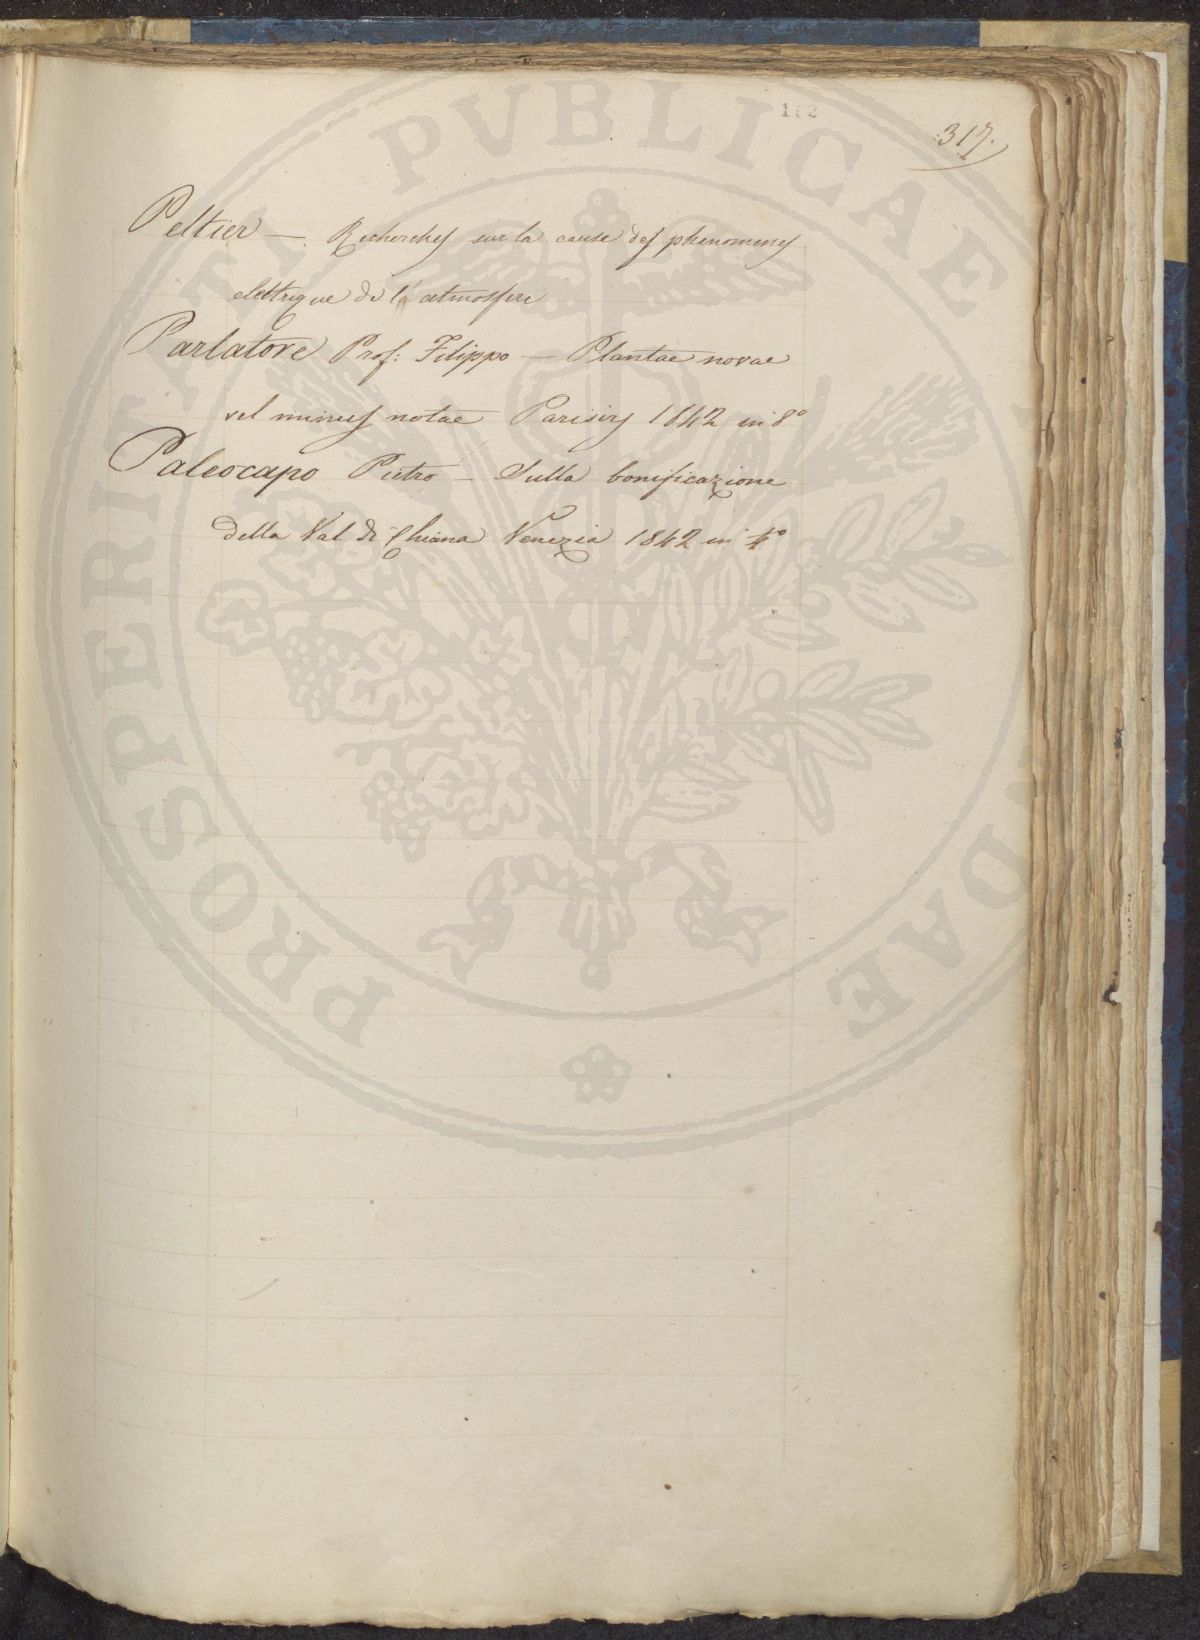 317.
Peltier — Recherches sur la cause des phenomenes
elettrique de l'atmosfere
Parlatore Prof: Filippo — Plantae novae
vel minus notae Parisiis 1842 in 8°
Paleocapo Pietro — Sulla bonificazione
della Val di Chiana Venezia 1842 in 4°
PROSPERITATI PVBLICAE